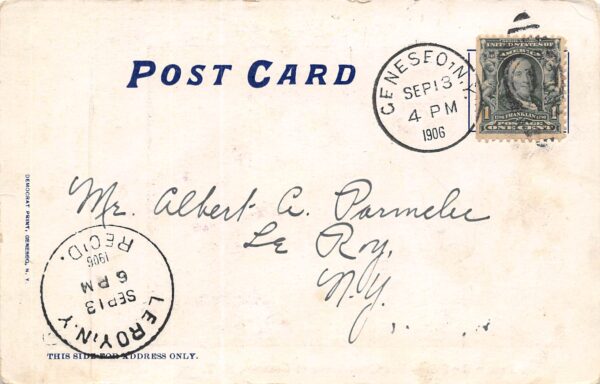 POST CARD
GENESEO, N.Y.
SEP 13
4 PM
1906
UNITED STATES OF
AMERICA
FRANKLIN
POSTAGE
1 ONE CENT 1
Mr. Albert A. Parmelee
Le Roy,
N.Y.
DEMOCRAT PRINT, GENESEO, N. Y.
LEROY, N.Y.
SEP 13
6 PM
1906
REC'D.
THIS SIDE FOR ADDRESS ONLY.